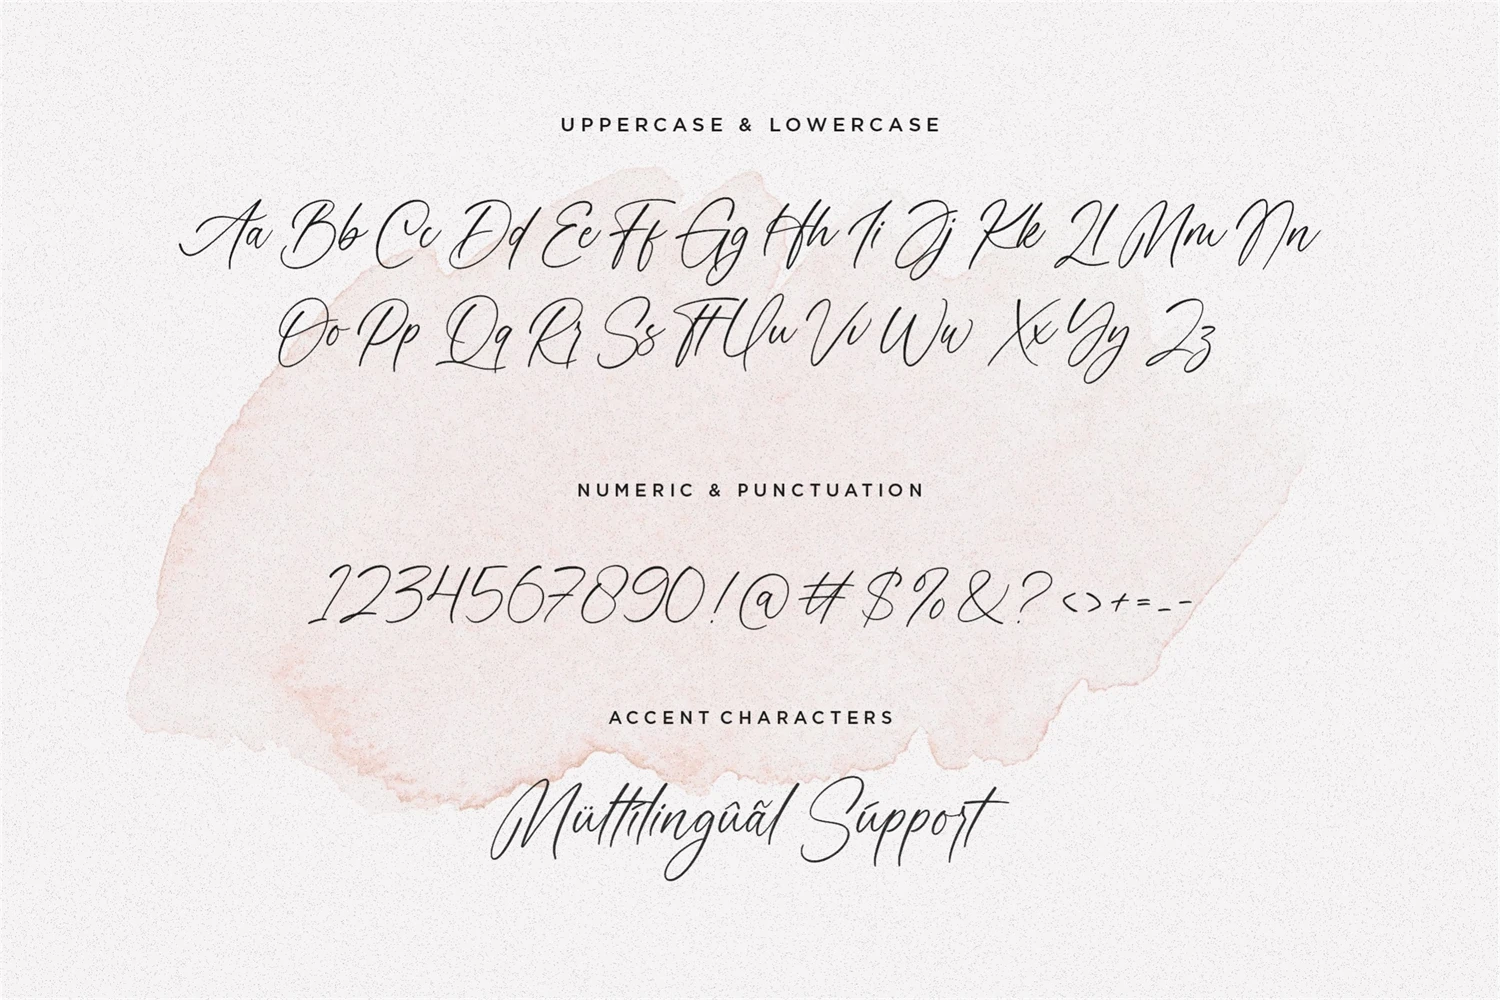 UPPERCASE & LOWERCASE
Aa Bb Cc Dd Ee Ff Gg Hh Ii Jj Kk Ll Mm Nn
Oo Pp Qq Rr Ss Tt Uu Vv Ww Xx Yy Zz
NUMERIC & PUNCTUATION
1234567890!@#$%&?<>+=_-
ACCENT CHARACTERS
Mültílingûãl Súpport